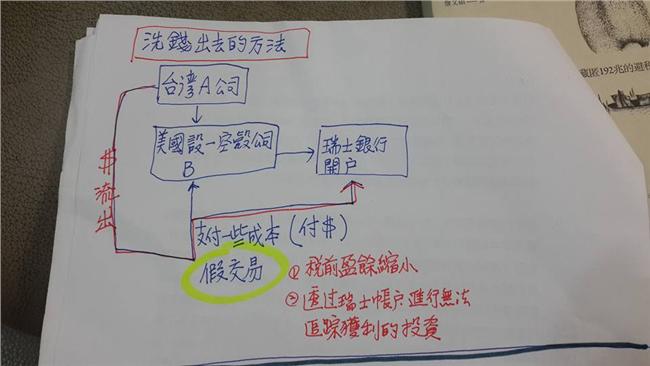 洗錢出去的方法
台灣A公司
美國設一空殼公司
B
瑞士銀行
開户
$流出
支付一些成本(付$)
假交易
① 稅前盈餘縮小
② 透过瑞士帳户進行無法
追踪獲利的投資
藏匿192兆的避稅